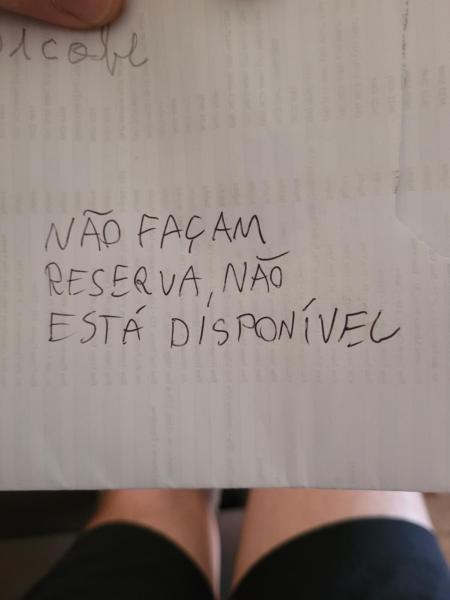 NÃO FAÇAM
RESERVA, NÃO
ESTÁ DISPONÍVEL